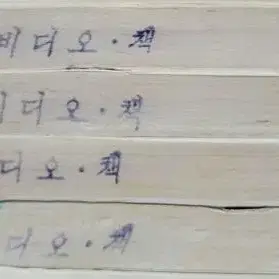 비디오·책
디오·책
디오·책
디오·책